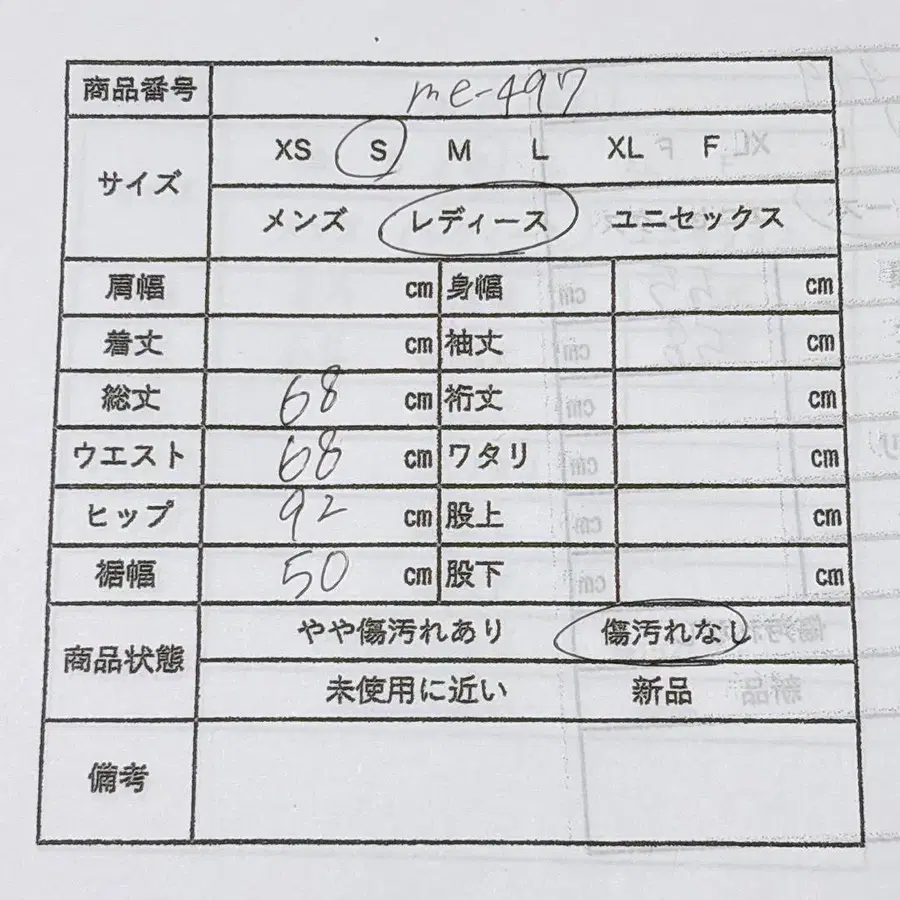 商品番号 me-497
サイズ XS S M L XL F
メンズ レディース ユニセックス
肩幅 cm 身幅 cm
着丈 cm 袖丈 cm
総丈 68 cm 裄丈 cm
ウエスト 68 cm ワタリ cm
ヒップ 92 cm 股上 cm
裾幅 50 cm 股下 cm
商品状態 やや傷汚れあり 傷汚れなし
未使用に近い 新品
備考